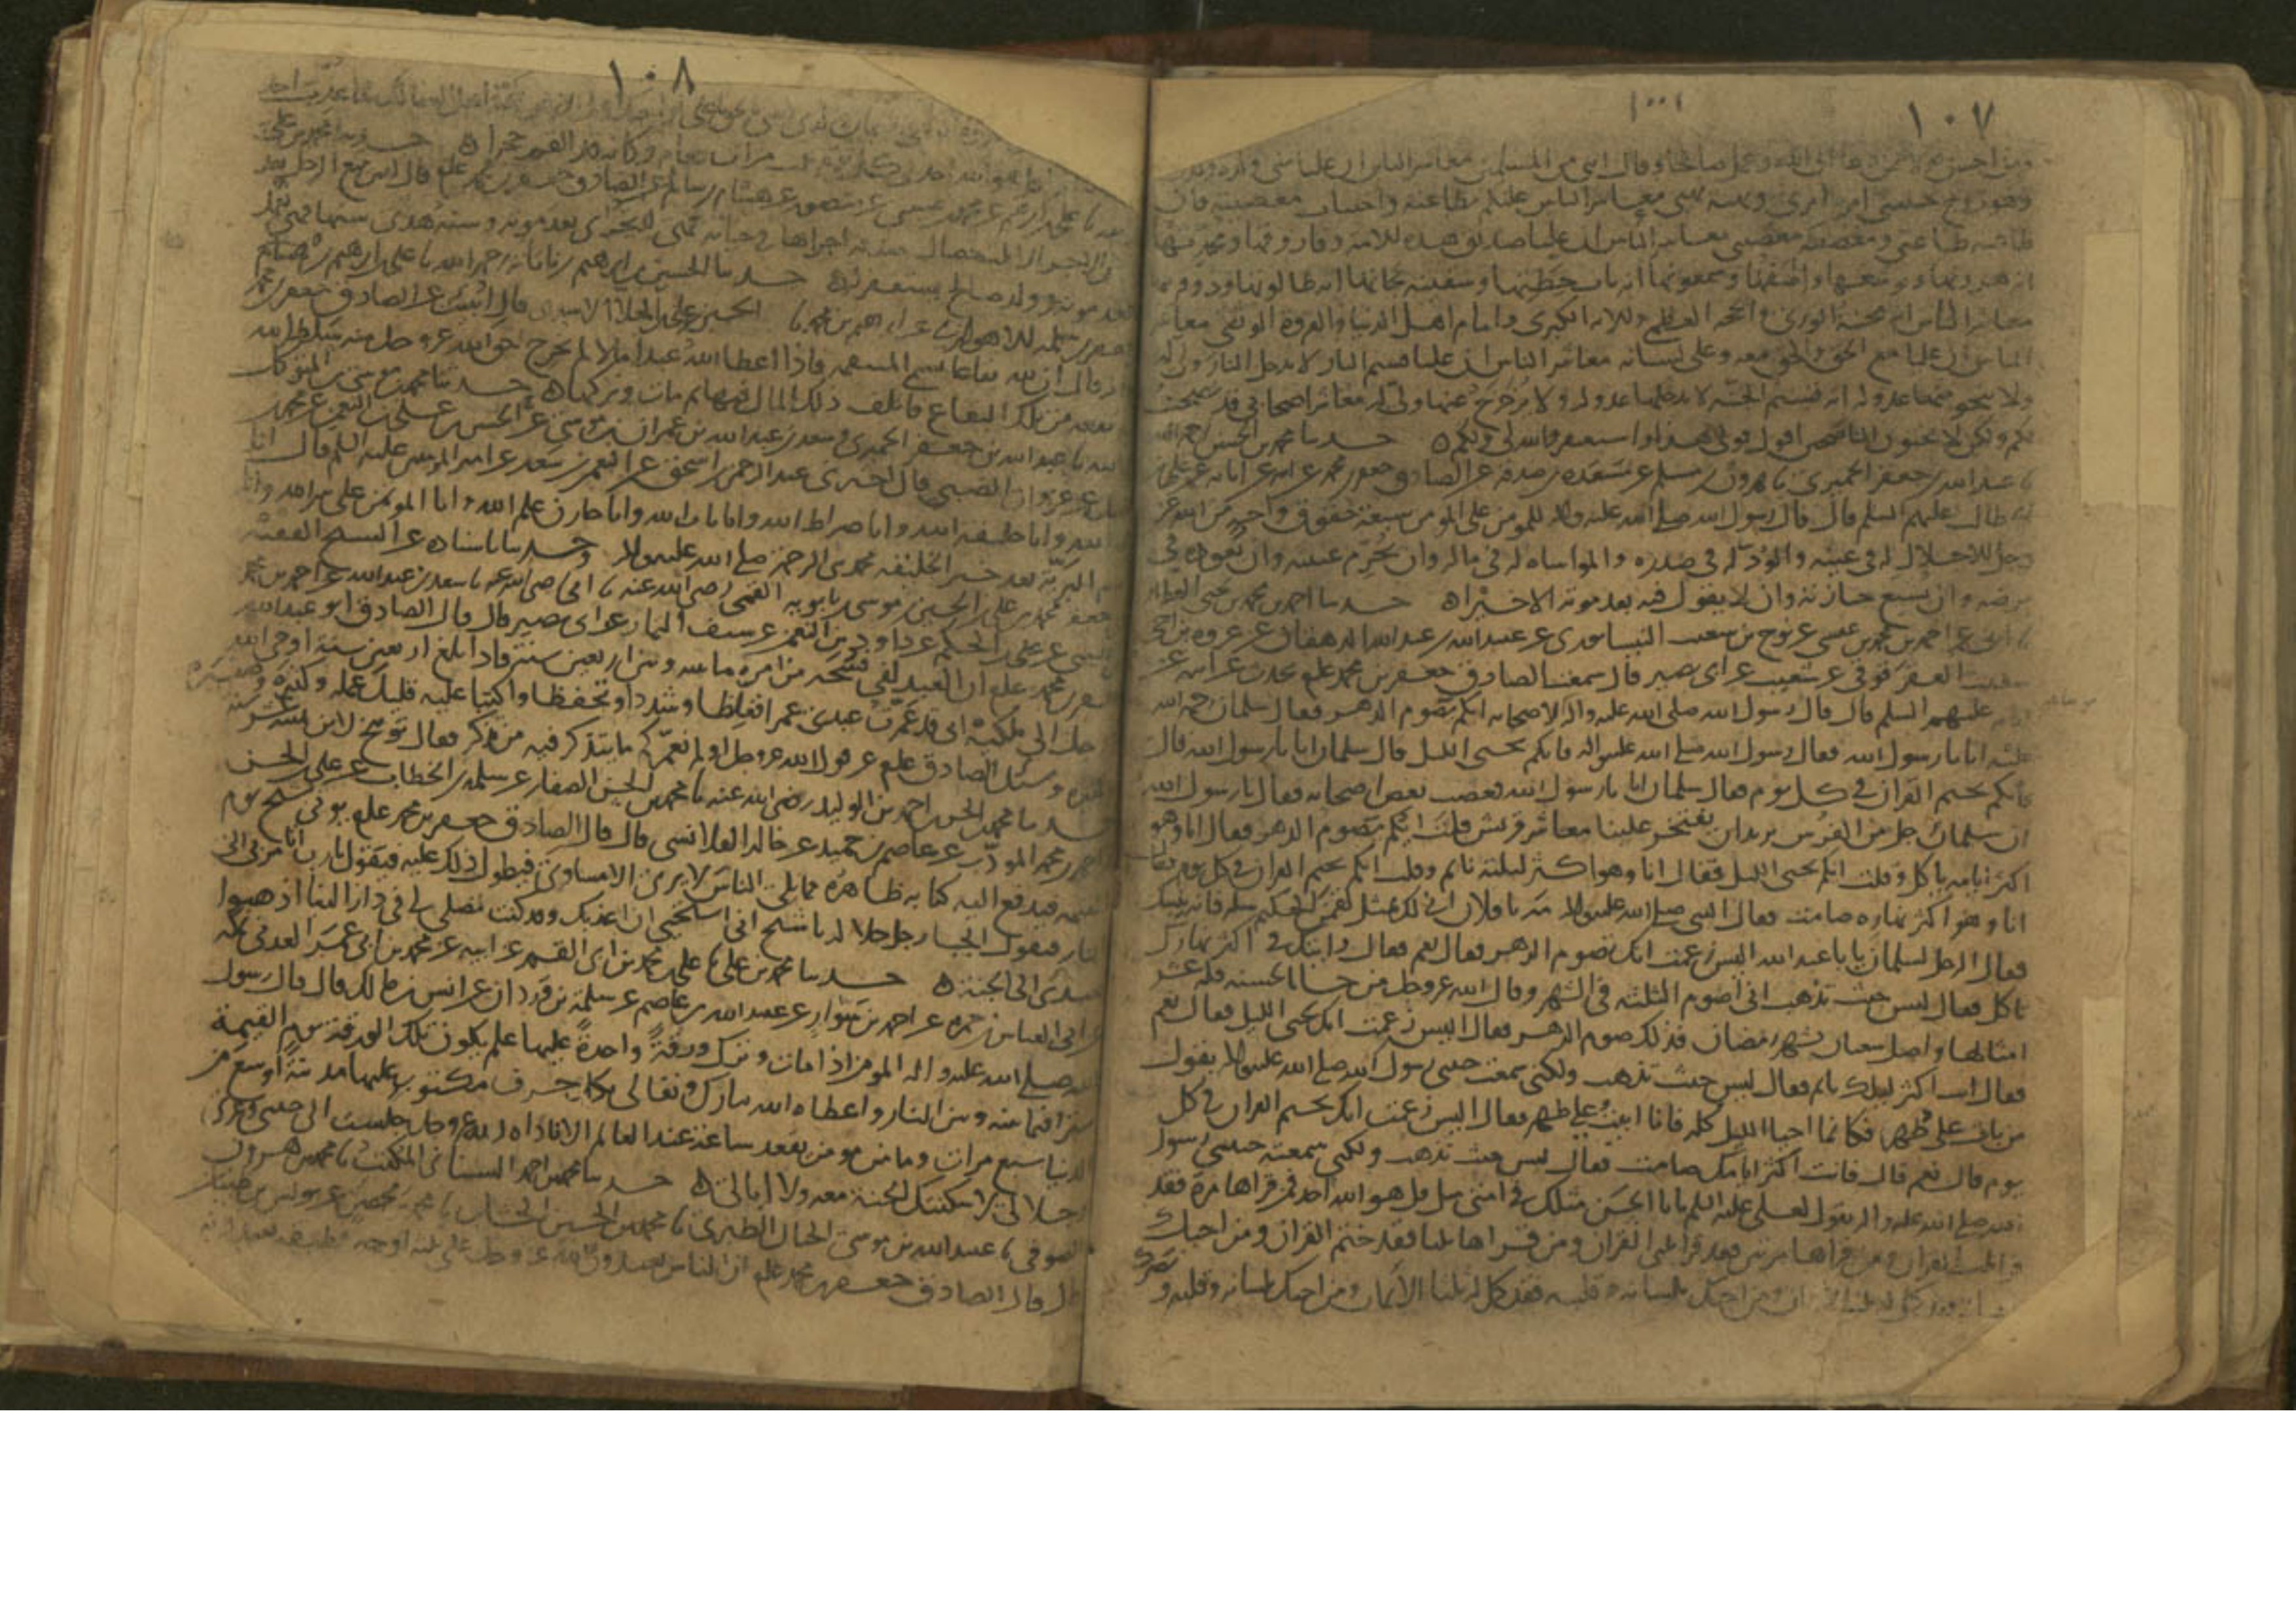 ١٠٧
ومن احسن قولا ممن دعا الى الله وعمل صالحا وقال انني من المسلمين معاشر الناس ان عليا مني ولده ولدي
وهو زوج حبيبتي امره امري ونهيه نهيي معاشر الناس عليكم بطاعته واجتناب معصيته فان
طاعته طاعتي ومعصيته معصيتي معاشر الناس ان عليا صديق هذه الامة وفاروقها ومحدثها
انه هرونها ويوشعها واصفها وشمعونها انه باب حطتها وسفينة نجاتها انه طالوتها وذو قرنيها
معاشر الناس انه محنة الورى والحجة العظمى والاية الكبرى وامام اهل الدنيا والعروة الوثقى معاشر
الناس ان عليا مع الحق والحق معه وعلى لسانه معاشر الناس ان عليا قسيم النار لا يدخل النار ولي له
ولا ينجو منها عدو له انه قسيم الجنة لا يدخلها عدو له ولا يزحزح عنها ولي له معاشر اصحابي قد نصحت
لكم ولكن لا تحبون الناصحين اقول قولي هذا واستغفر الله لي ولكم ه حدثنا محمد بن الحسن رحمه الله
نا عبدالله بن جعفر الحميري نا هرون بن مسلم عن مسعدة بن صدقة عن الصادق جعفر بن محمد عن ابيه عن ابائه عن علي بن
ابي طالب عليهم السلم قال قال رسول الله صلى الله عليه واله للمومن على المومن سبعة حقوق واجبة من الله عز
وجل الاجلال له في عينه والود له في صدره والمواساة له في ماله وان يحرم غيبته وان يعوده في
مرضه وان يشيع جنازته وان لا يقول فيه بعد موته الا خيرا ه حدثنا احمد بن محمد بن يحيى العطار
نا ابي عن احمد بن محمد بن عيسى عن نوح بن شعيب النيسابوري عن عبيد الله بن عبدالله الدهقان عن عروة بن اخي
شعيب العقرقوفي عن شعيب عن ابي بصير قال سمعت الصادق جعفر بن محمد علم يحدث عن ابيه عن
ابائه عليهم السلم قال قال رسول الله صلى الله عليه واله لاصحابه ايكم يصوم الدهر فقال سلمان رحمة الله
عليه انا يا رسول الله فقال رسول الله صلى الله عليه واله فايكم يحيى الليل قال سلمان انا يا رسول الله قال
فايكم يختم القران في كل يوم فقال سلمان انا يا رسول الله فغضب بعض اصحابه فقال يا رسول الله
ان سلمان رجل من الفرس يريد ان يفتخر علينا معاشر قريش قلت ايكم يصوم الدهر فقال انا وهو
اكثر ايامه ياكل وقلت ايكم يحيى الليل فقال انا وهو اكثر ليلته نائم وقلت ايكم يختم القران في كل يوم فقال
انا وهو اكثر نهاره صامت فقال النبي صلى الله عليه واله مه يا فلان انى لك بمثل لقمن الحكيم سله فانه ينبئك
فقال الرجل لسلمان يا باعبد الله اليس زعمت انك تصوم الدهر فقال نعم فقال رايتك في اكثر نهارك
تاكل فقال ليس حيث تذهب اني اصوم الثلثة في الشهر وقال الله عز وجل من جاء بالحسنة فله عشر
امثالها واصل شعبان بشهر رمضان فذلك صوم الدهر فقال اليس زعمت انك تحيى الليل فقال نعم
فقال انت اكثر ليلك نائم فقال ليس حيث تذهب ولكني سمعت حبيبي رسول الله صلى الله عليه واله يقول
من بات على طهر فكانما احيا الليل كله فانا ابيت على طهر فقال اليس زعمت انك تختم القران في كل
يوم قال نعم قال فانت اكثر ايامك صامت فقال ليس حيث تذهب ولكني سمعت حبيبي رسول
الله صلى الله عليه واله يقول لعلي عليه السلم يا ابا الحسن مثلك في امتي مثل قل هو الله احد فمن قراها مرة فقد
قرا ثلث القران ومن قراها مرتين فقد قرا ثلثي القران ومن قراها ثلثا فقد ختم القران ومن احبك
بلسانه فقد كمل له ثلث الايمان ومن احبك بلسانه وقلبه فقد كمل له ثلثا الايمان ومن احبك بلسانه وقلبه و
نصرك
١٠٨
قل هو الله احد مرات فقام وكانه قد القم حجرا ه حدثنا محمد بن علي
نا علي بن ابرهيم عن محمد بن عيسى عن منصور عن هشام بن سالم عن الصادق جعفر بن محمد علم قال ليس يتبع الرجل بعد
موته من الاجر الا ثلث خصال صدقة اجراها في حياته فهي تجرى بعد موته وسنة هدى سنها فهي تعمل
بها بعد موته وولد صالح يستغفر له ه حدثنا الحسين بن ابرهيم بن ناتانه رحمه الله نا علي بن ابرهيم بن هاشم
عن جعفر بن سلمة الاهوازي نا ابرهيم بن محمد نا الحسين علي المعلا الاسدي قال انبئت عن الصادق جعفر بن محمد
انه قال ان لله بقاعا تسمى المنتقمة فاذا اعطا الله عبدا مالا لم يخرج حق الله عز وجل منه سلط الله
عليه بقعة من تلك البقاع فاتلف ذلك المال فيها ثم مات وتركها ه حدثنا محمد بن موسى بن المتوكل
رحمه الله نا عبدالله بن جعفر الحميري وسعد بن عبدالله نا عمران بن موسى عن الحسن بن علي بن النعمن عن محمد
بن فضيل عن غزوان الضبي قال اخبرني عبد الرحمن بن اسحق عن النعمن بن سعد عن امير المومنين عليه السلم قال انا
حجة الله وانا خليفة الله وانا صراط الله وانا باب الله وانا خازن علم الله وانا المؤتمن على سر الله وانا
امام البرية بعد خير الخليقة محمد نبي الرحمة صلى الله عليه واله وحدثنا باسناده عن الشيخ الفقيه
ابي جعفر محمد بن علي بن الحسين بن موسى بن بابويه القمي رضي الله عنه نا ابي رضي الله عنه نا سعد بن عبدالله عن احمد بن محمد
بن عيسى عن علي بن الحكم عن داود بن النعمن عن سيف التمار عن ابي بصير قال قال الصادق ابو عبدالله
جعفر بن محمد علم ان العبد لفي فسحة من امره ما بينه وبين اربعين سنة فاذا بلغ اربعين سنة اوحى الله
عز وجل الى ملكيه اني قد عمرت عبدي عمرا فغلظا وشددا وتحفظا واكتبا عليه قليل عمله وكثيره وصغيره
وكبيره وسئل الصادق علم عن قول الله عز وجل اولم نعمركم ما يتذكر فيه من تذكر فقال توبيخ لابن ثمان عشرة سنة
حدثنا محمد بن الحسن بن احمد بن الوليد رضي الله عنه نا محمد بن الحسن الصفار عن سلمة بن الخطاب عن علي بن الحسن
عن احمد بن محمد المؤدب عن عاصم بن حميد عن خالد القلانسي قال قال الصادق جعفر بن محمد علم يوتى بشيخ يوم
القيمة فيدفع اليه كتابه ظاهره مما يلي الناس لا يرى الا مساوي فيطول ذلك عليه فيقول يا رب اتامر بي الى
النار فيقول الجبار جل جلاله يا شيخ اني استحيي ان اعذبك وقد كنت تصلي لي في دار الدنيا اذهبوا
بعبدي الى الجنة ه حدثنا محمد بن علي نا علي بن محمد بن ابي القسم عن ابيه عن محمد بن ابي عمر العدني بمكة
عن ابي العباس بن حمزة عن احمد بن سوار عن عبيد الله بن عاصم عن سلمة بن وردان عن انس بن مالك قال قال رسول
الله صلى الله عليه واله المومن اذا مات وترك ورقة واحدة عليها علم يكون تلك الورقة يوم القيمة
سترا فيما بينه وبين النار واعطاه الله تبارك وتعالى بكل حرف مكتوب عليها مدينة اوسع من
الدنيا سبع مرات وما من مومن يقعد ساعة عند العالم الا ناداه ربه عز وجل جلست الى حبيبي وعزتي
وجلالي لاسكننك الجنة معه ولا ابالي ه حدثنا محمد بن احمد السناني المكتب نا محمد بن هرون
الصوفي نا عبيد الله بن موسى الحبال الطبري نا محمد بن الحسين الخشاب نا محمد بن محصن عن يونس بن ظبيان
قال قال الصادق جعفر بن محمد علم ان الناس يعبدون الله عز وجل على ثلثة اوجه فطبقة يعبدونه